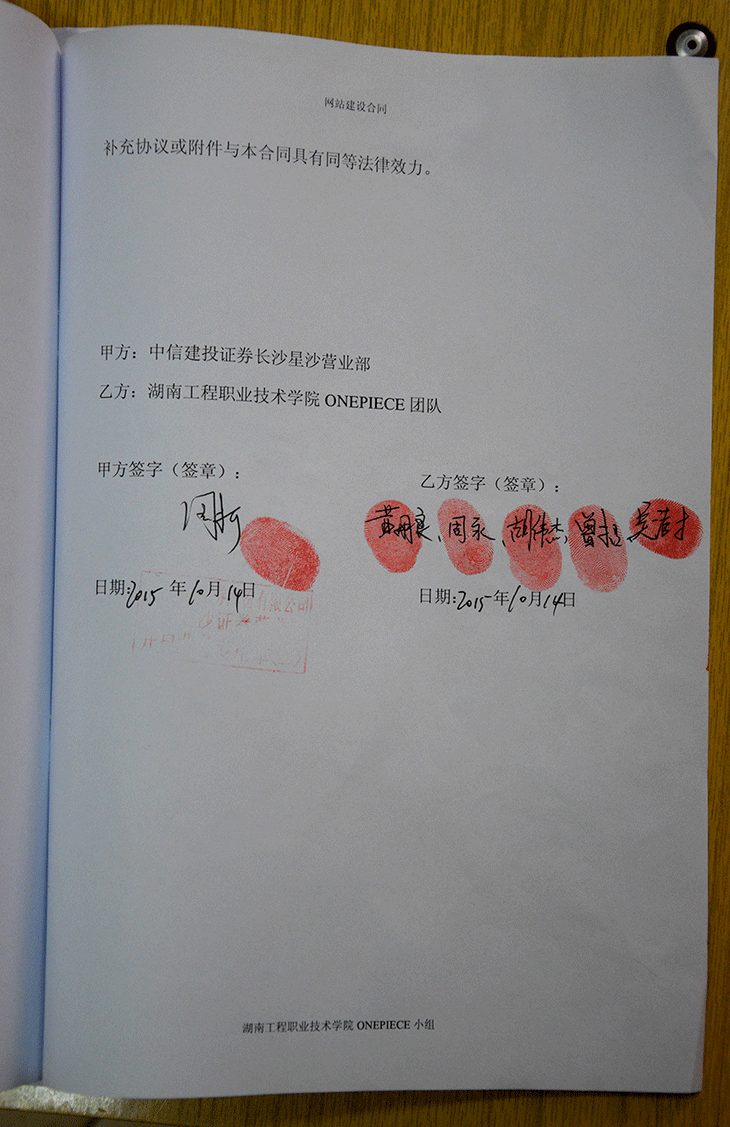 网站建设合同
补充协议或附件与本合同具有同等法律效力。
甲方：中信建投证券长沙星沙营业部
乙方：湖南工程职业技术学院 ONEPIECE 团队
甲方签字（签章）：
乙方签字（签章）：
周永、胡伟杰、曾
日期:2015年10月14日
日期:2015年10月14日
湖南工程职业技术学院 ONEPIECE 小组